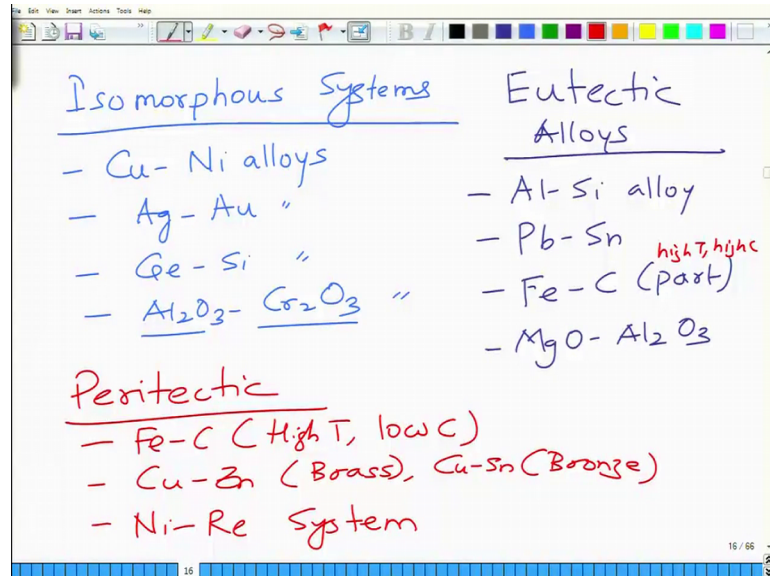 File Edit View Insert Actions Tools Help
Isomorphous Systems
- Cu-Ni alloys
- Ag-Au "
- Ge-Si "
- Al2O3-Cr2O3 "
Eutectic
Alloys
- Al-Si alloy
- Pb-Sn
high T, high C
- Fe-C (part)
- MgO-Al2O3
Peritectic
- Fe-C (High T, low C)
- Cu-Zn (Brass), Cu-Sn (Bronze)
- Ni-Re System
16 / 66
16